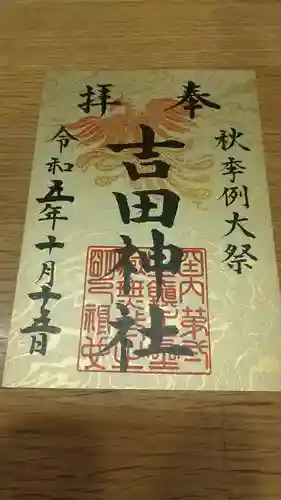 奉拝
秋季例大祭
吉田神社
令和五年十月十五日